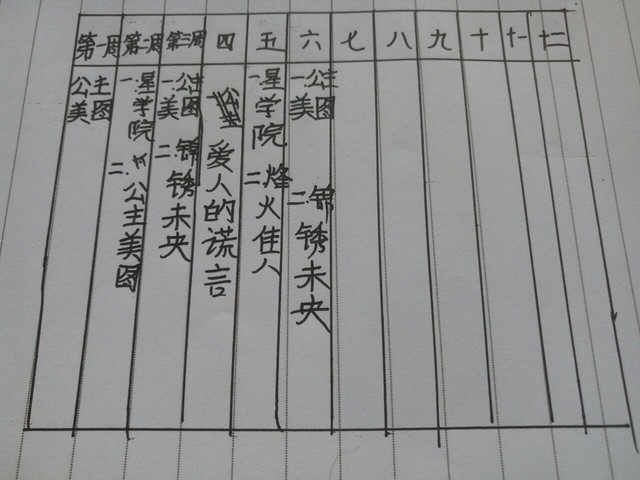 第一周 第二周 第三周 四 五 六 七 八 九 十 十一 十二
公主
美图
一.星学院
二.公主美图
一.公主
美图
二.锦绣未央
爱人的谎言
一.星学院
二.烽火佳人
一.公主
美图
二.锦绣未央